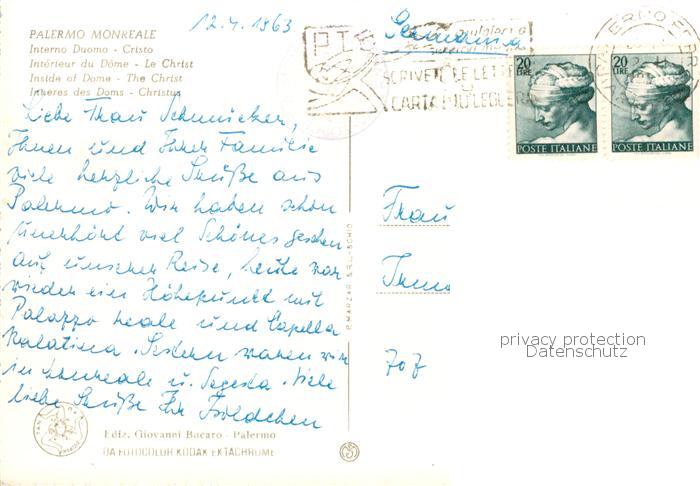 12.4.1963
PALERMO MONREALE
Interno Duomo - Cristo
Intérieur du Dôme - Le Christ
Inside of Dome - The Christ
Inneres des Doms - Christus
Liebe Frau Schmucker,
Ihnen und Ihrer Familie
viele herzliche Grüße aus
Palermo. Wir haben schon
unerhört viel Schönes gesehen
auf unserer Reise, heute war
wieder ein Höhepunkt mit
Palazzo Reale und Capella
Palatina. Gestern waren wir
in Monreale u. Segesta. Viele
liebe Grüße Ihr
Ediz. Giovanni Bucaro - Palermo
DA FOTOCOLOR KODAK EKTACHROME
Germania
SCRIVETE LE LETTERE
SU CARTA PIÙ LEGGERA
20 LIRE
POSTE ITALIANE
20 LIRE
POSTE ITALIANE
Frau
707
privacy protection
Datenschutz